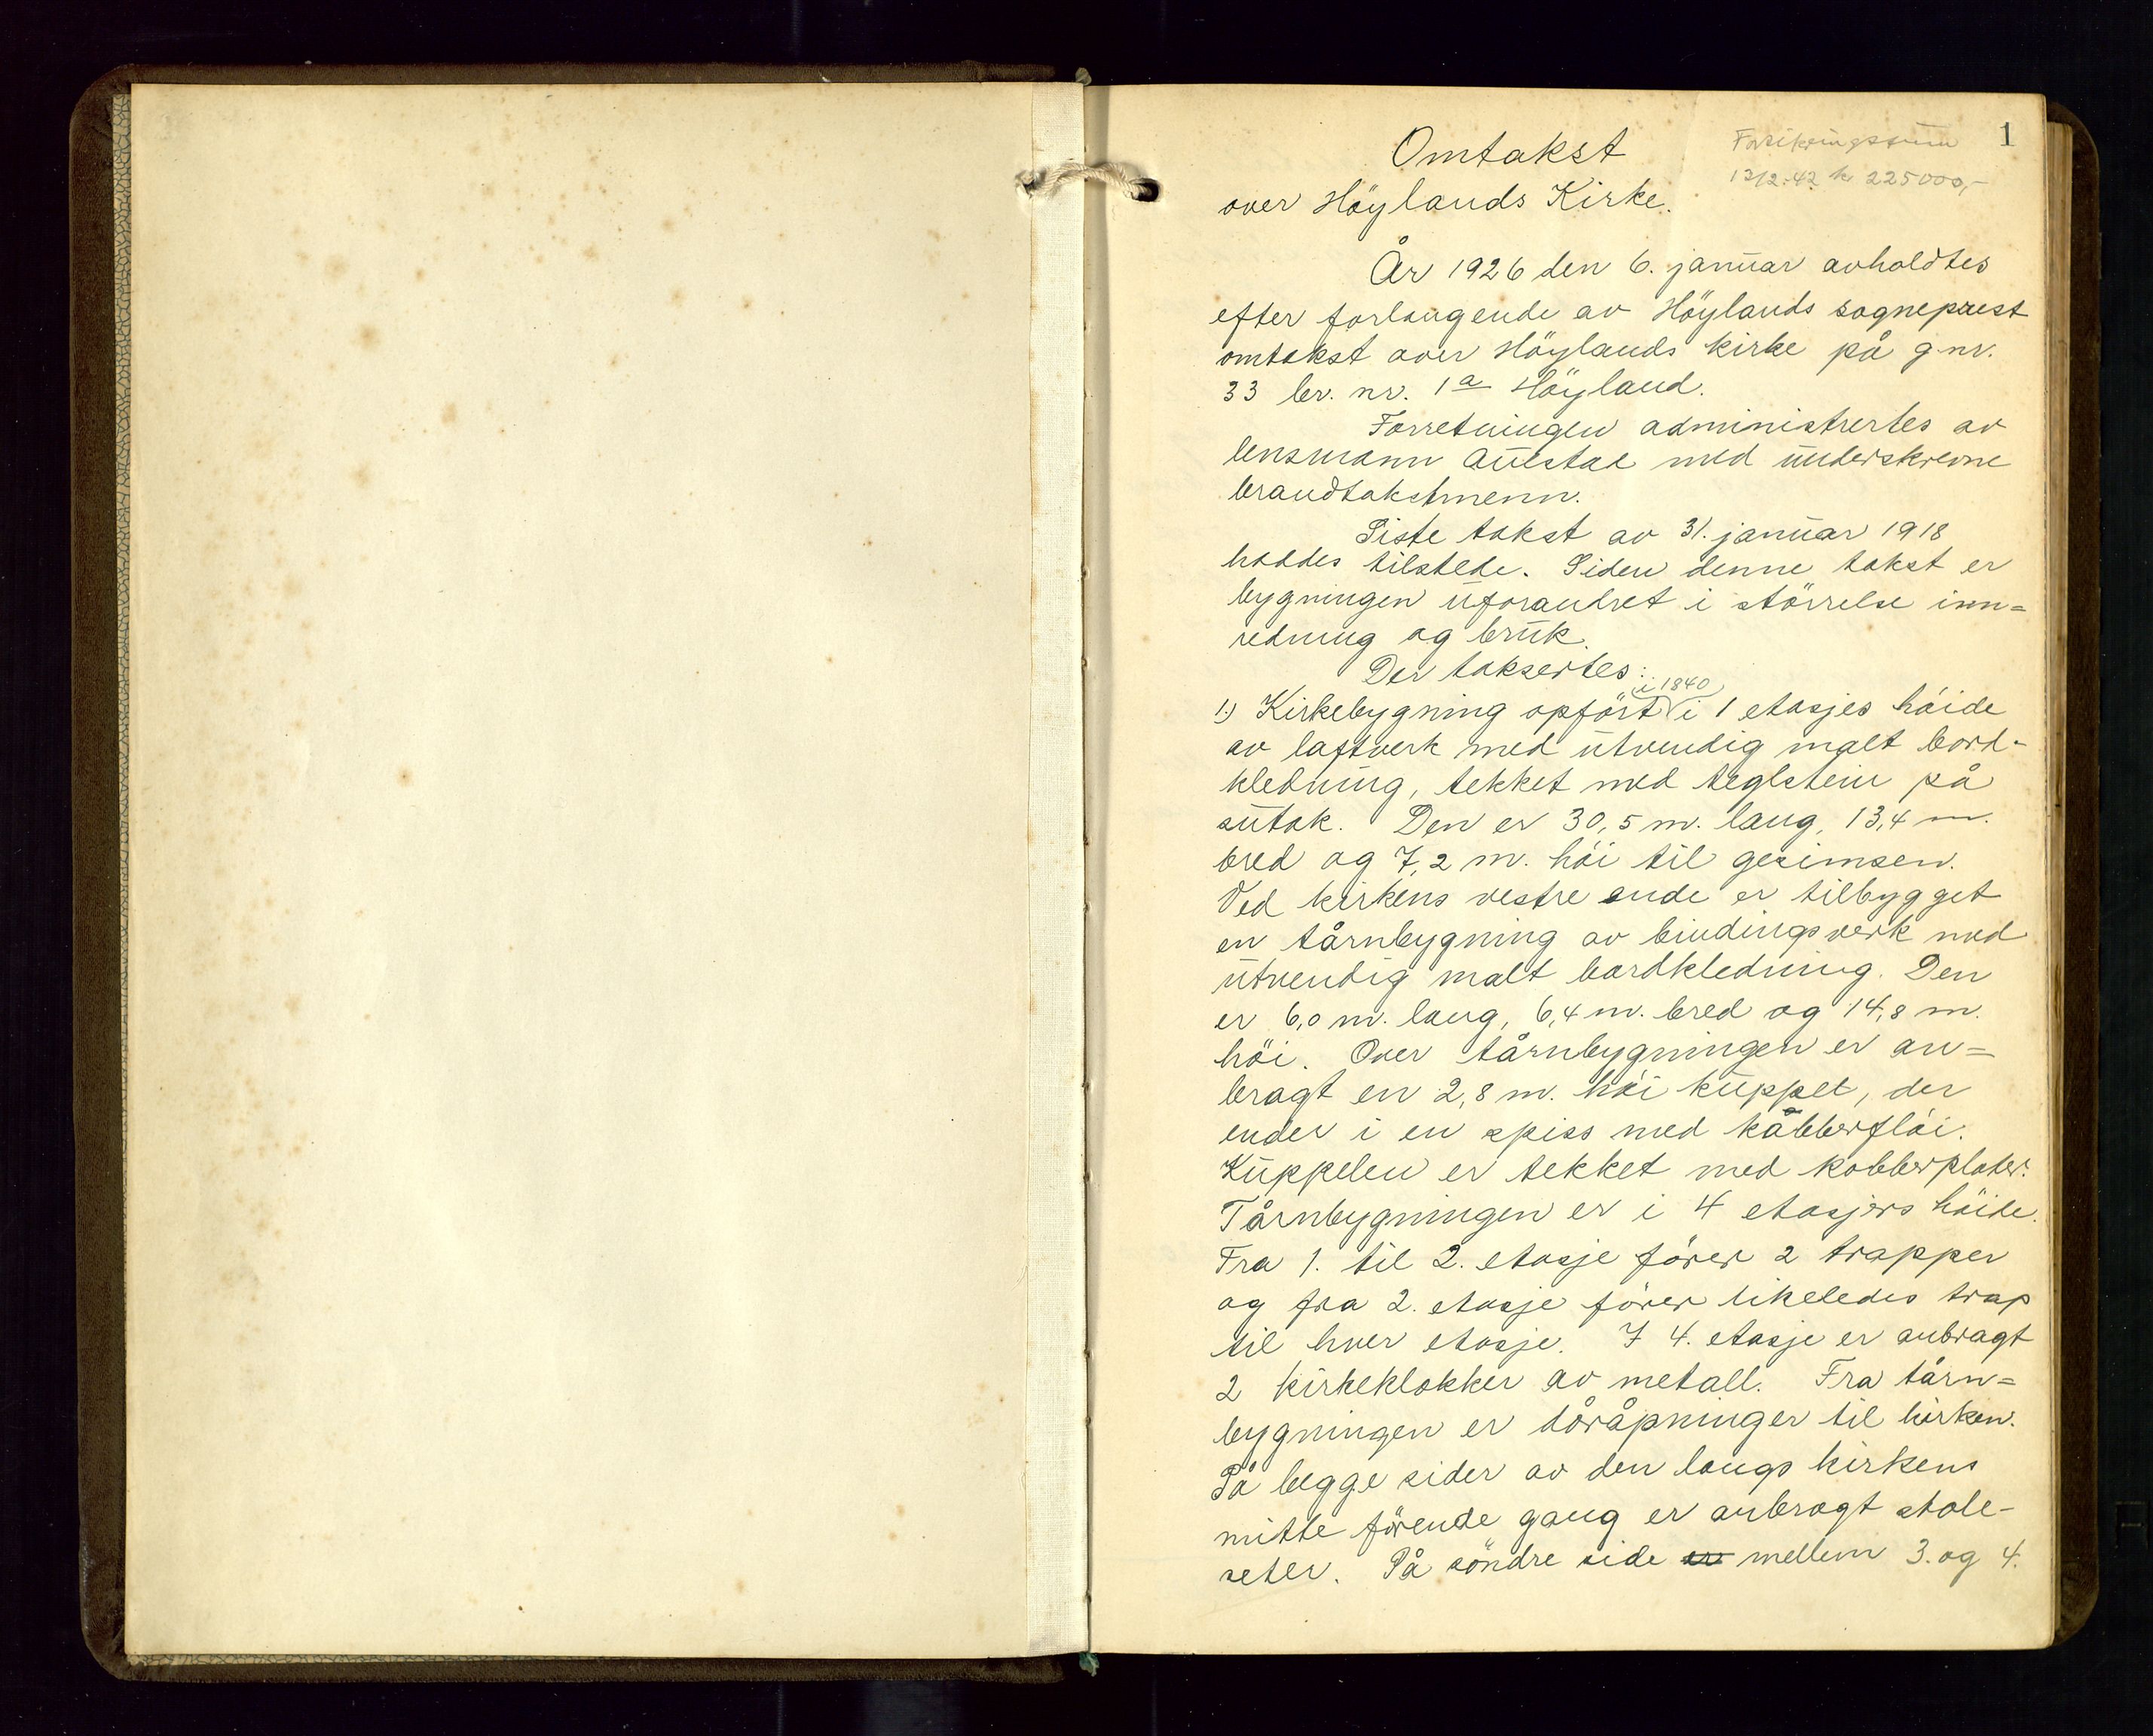 1
Forsikringssum
12/2.42 kr 225000,-
Omtakst
over Höylands Kirke.
År 1926 den 6. januar avholdtes
efter forlangende av Höylands sogneprest
omtakst over Höylands kirke på g.nr.
33 br. nr. 1a Höyland.
Forretningen administrertes av
lensmann Aulstad med underskrevne
brandtakstmenn.
Siste takst av 31. januar 1918
haddes tilstede. Siden denne takst er
bygningen uforandret i störrelse inn=
redning og bruk.
Der taksertes:
i 1840
1.) Kirkebygning opfört i 1 etasjes höide
av laftverk med utvendig malt bord-
kledning, tekket med teglstein på
sutak. Den er 30,5 m. lang, 13,4 m.
bred og 7,2 m. höi til gesimsen.
Ved kirkens vestre ende er tilbygget
en tårnbygning av bindingsverk med
utvendig malt bordkledning. Den
er 6,0 m. lang, 6,4 m. bred og 14,8 m.
höi. Over tårnbygningen er an=
bragt en 2,8 m. höi kuppel, der
ender i en spiss med kobberflöi.
Kuppelen er tekket med kobberplater.
Tårnbygningen er i 4 etasjers höide.
Fra 1. til 2. etasje förer 2 trapper
og fra 2. etasje förer likeledes trap
til hver etasje. I 4. etasje er anbragt
2 kirkeklokker av metall. Fra tårn=
bygningen er döråpninger til kirken.
På begge sider av den langs kirkens
mitte förende gang er anbragt stole-
seter. På söndre side er mellem 3. og 4.